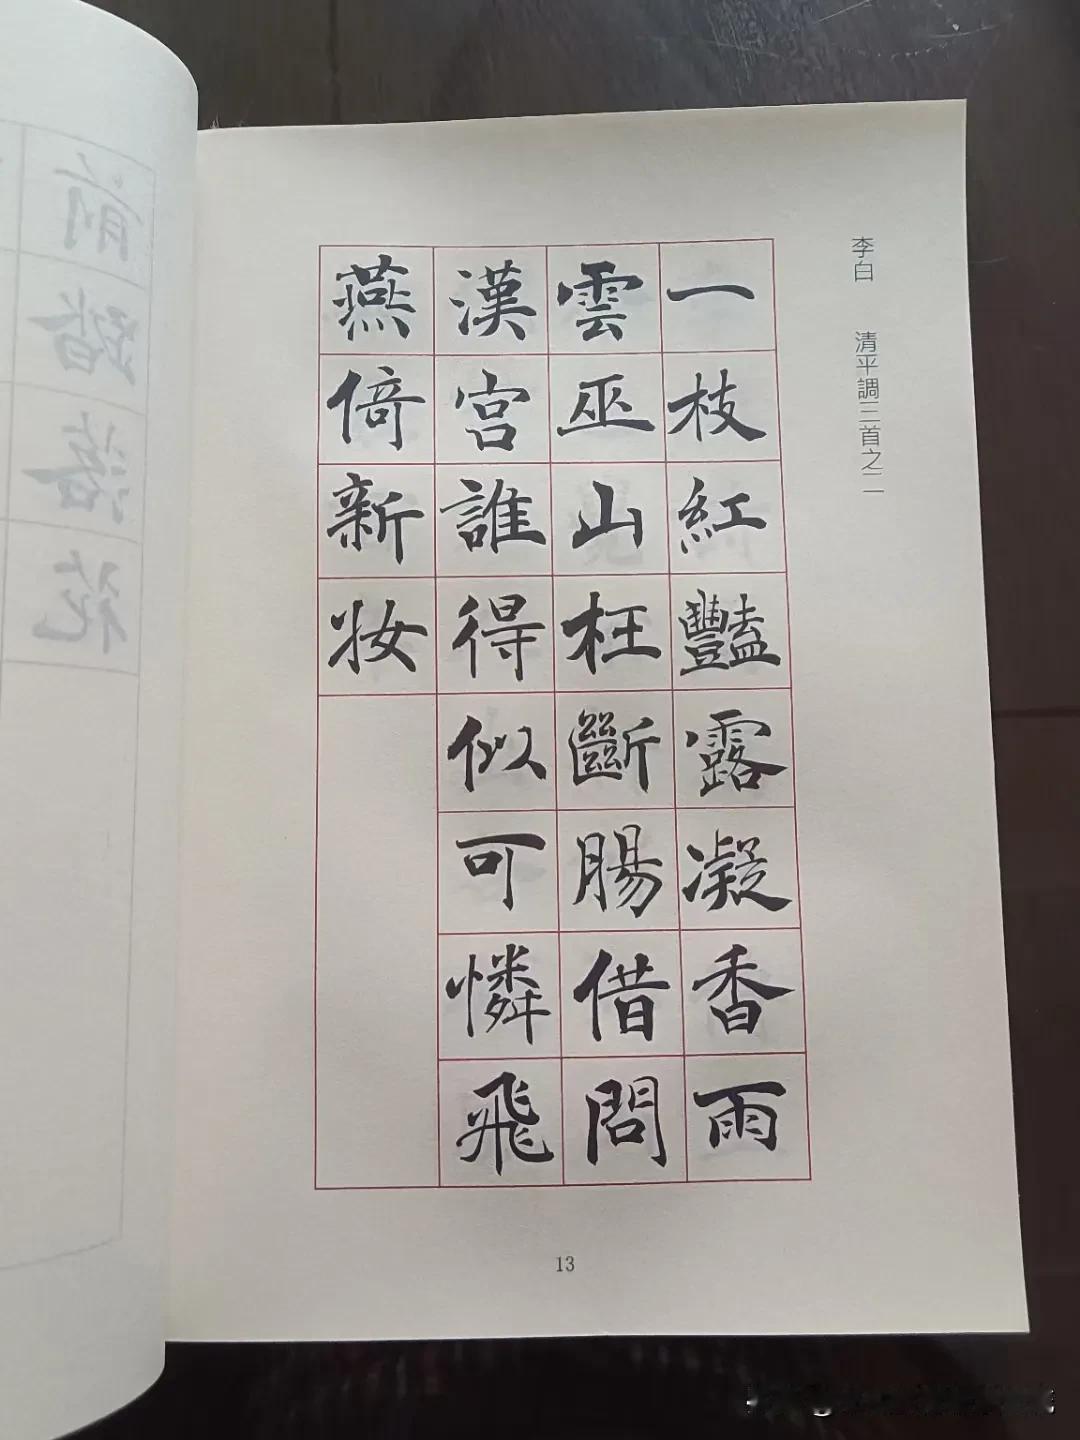 李白 清平調三首之二
一枝紅豔露凝香雨
雲巫山枉斷腸借問
漢宮誰得似可憐飛
燕倚新妝
13